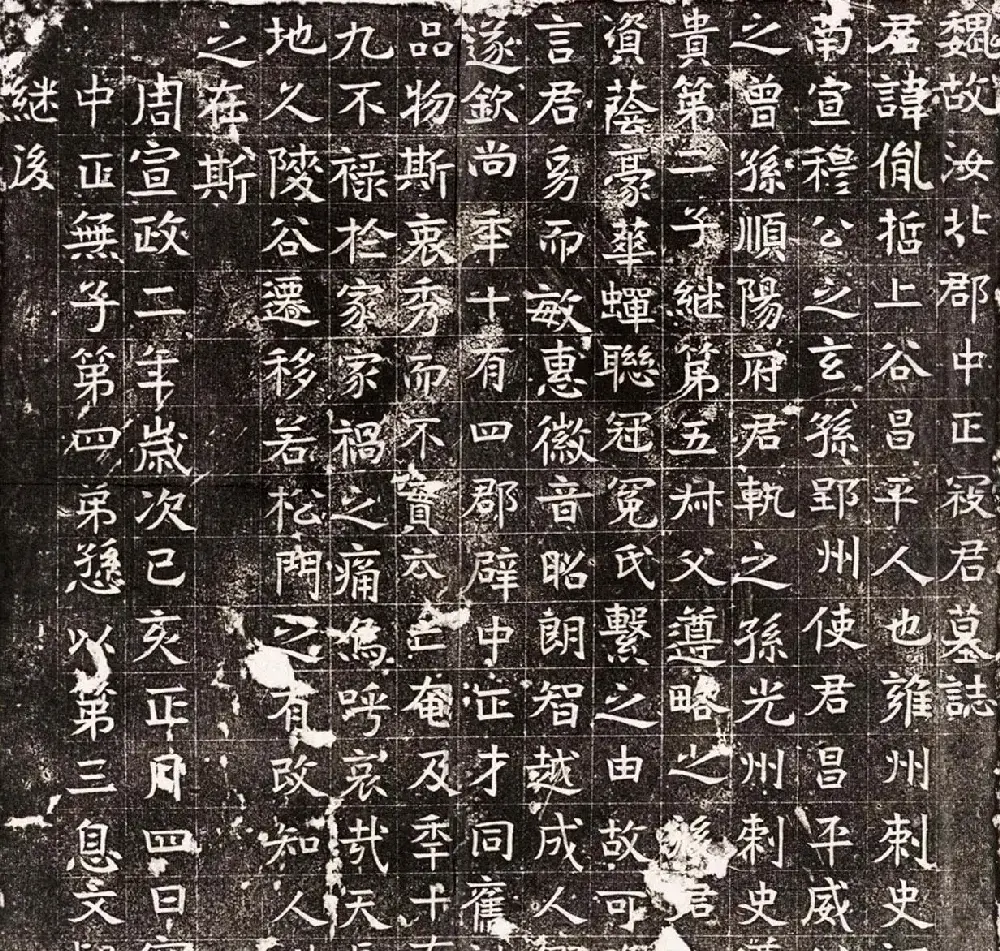 魏故汝北郡中正寇君墓誌
君諱胤哲上谷昌平人也雍州刺史
南宣穆公之玄孫郢州使君昌平威
之曾孫順陽府君軌之孫光州刺史
貴第二子継第五叔父遵略之後君
資蔭豪華蟬聯冠冕氏繫之由故可
言君幼而敏惠徽音昭朗智越成人
遂欽尚年十有四郡辟中正才同舊
品物斯衷秀而不實六亡奄及年十
九不祿於家家禍之痛烏呼哀哉天
地久陵谷遷移若松門之有改知人
之在斯
周宣政二年歲次己亥正月四日
中正無子第四弟愻以第三息文
継後